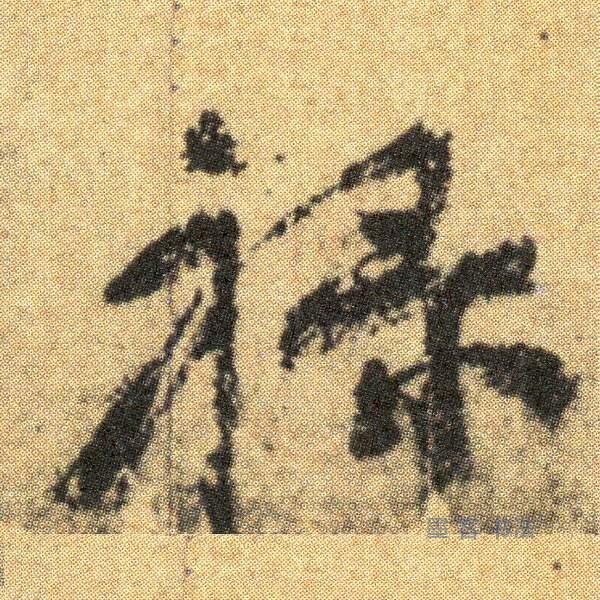 禄
墨客书法